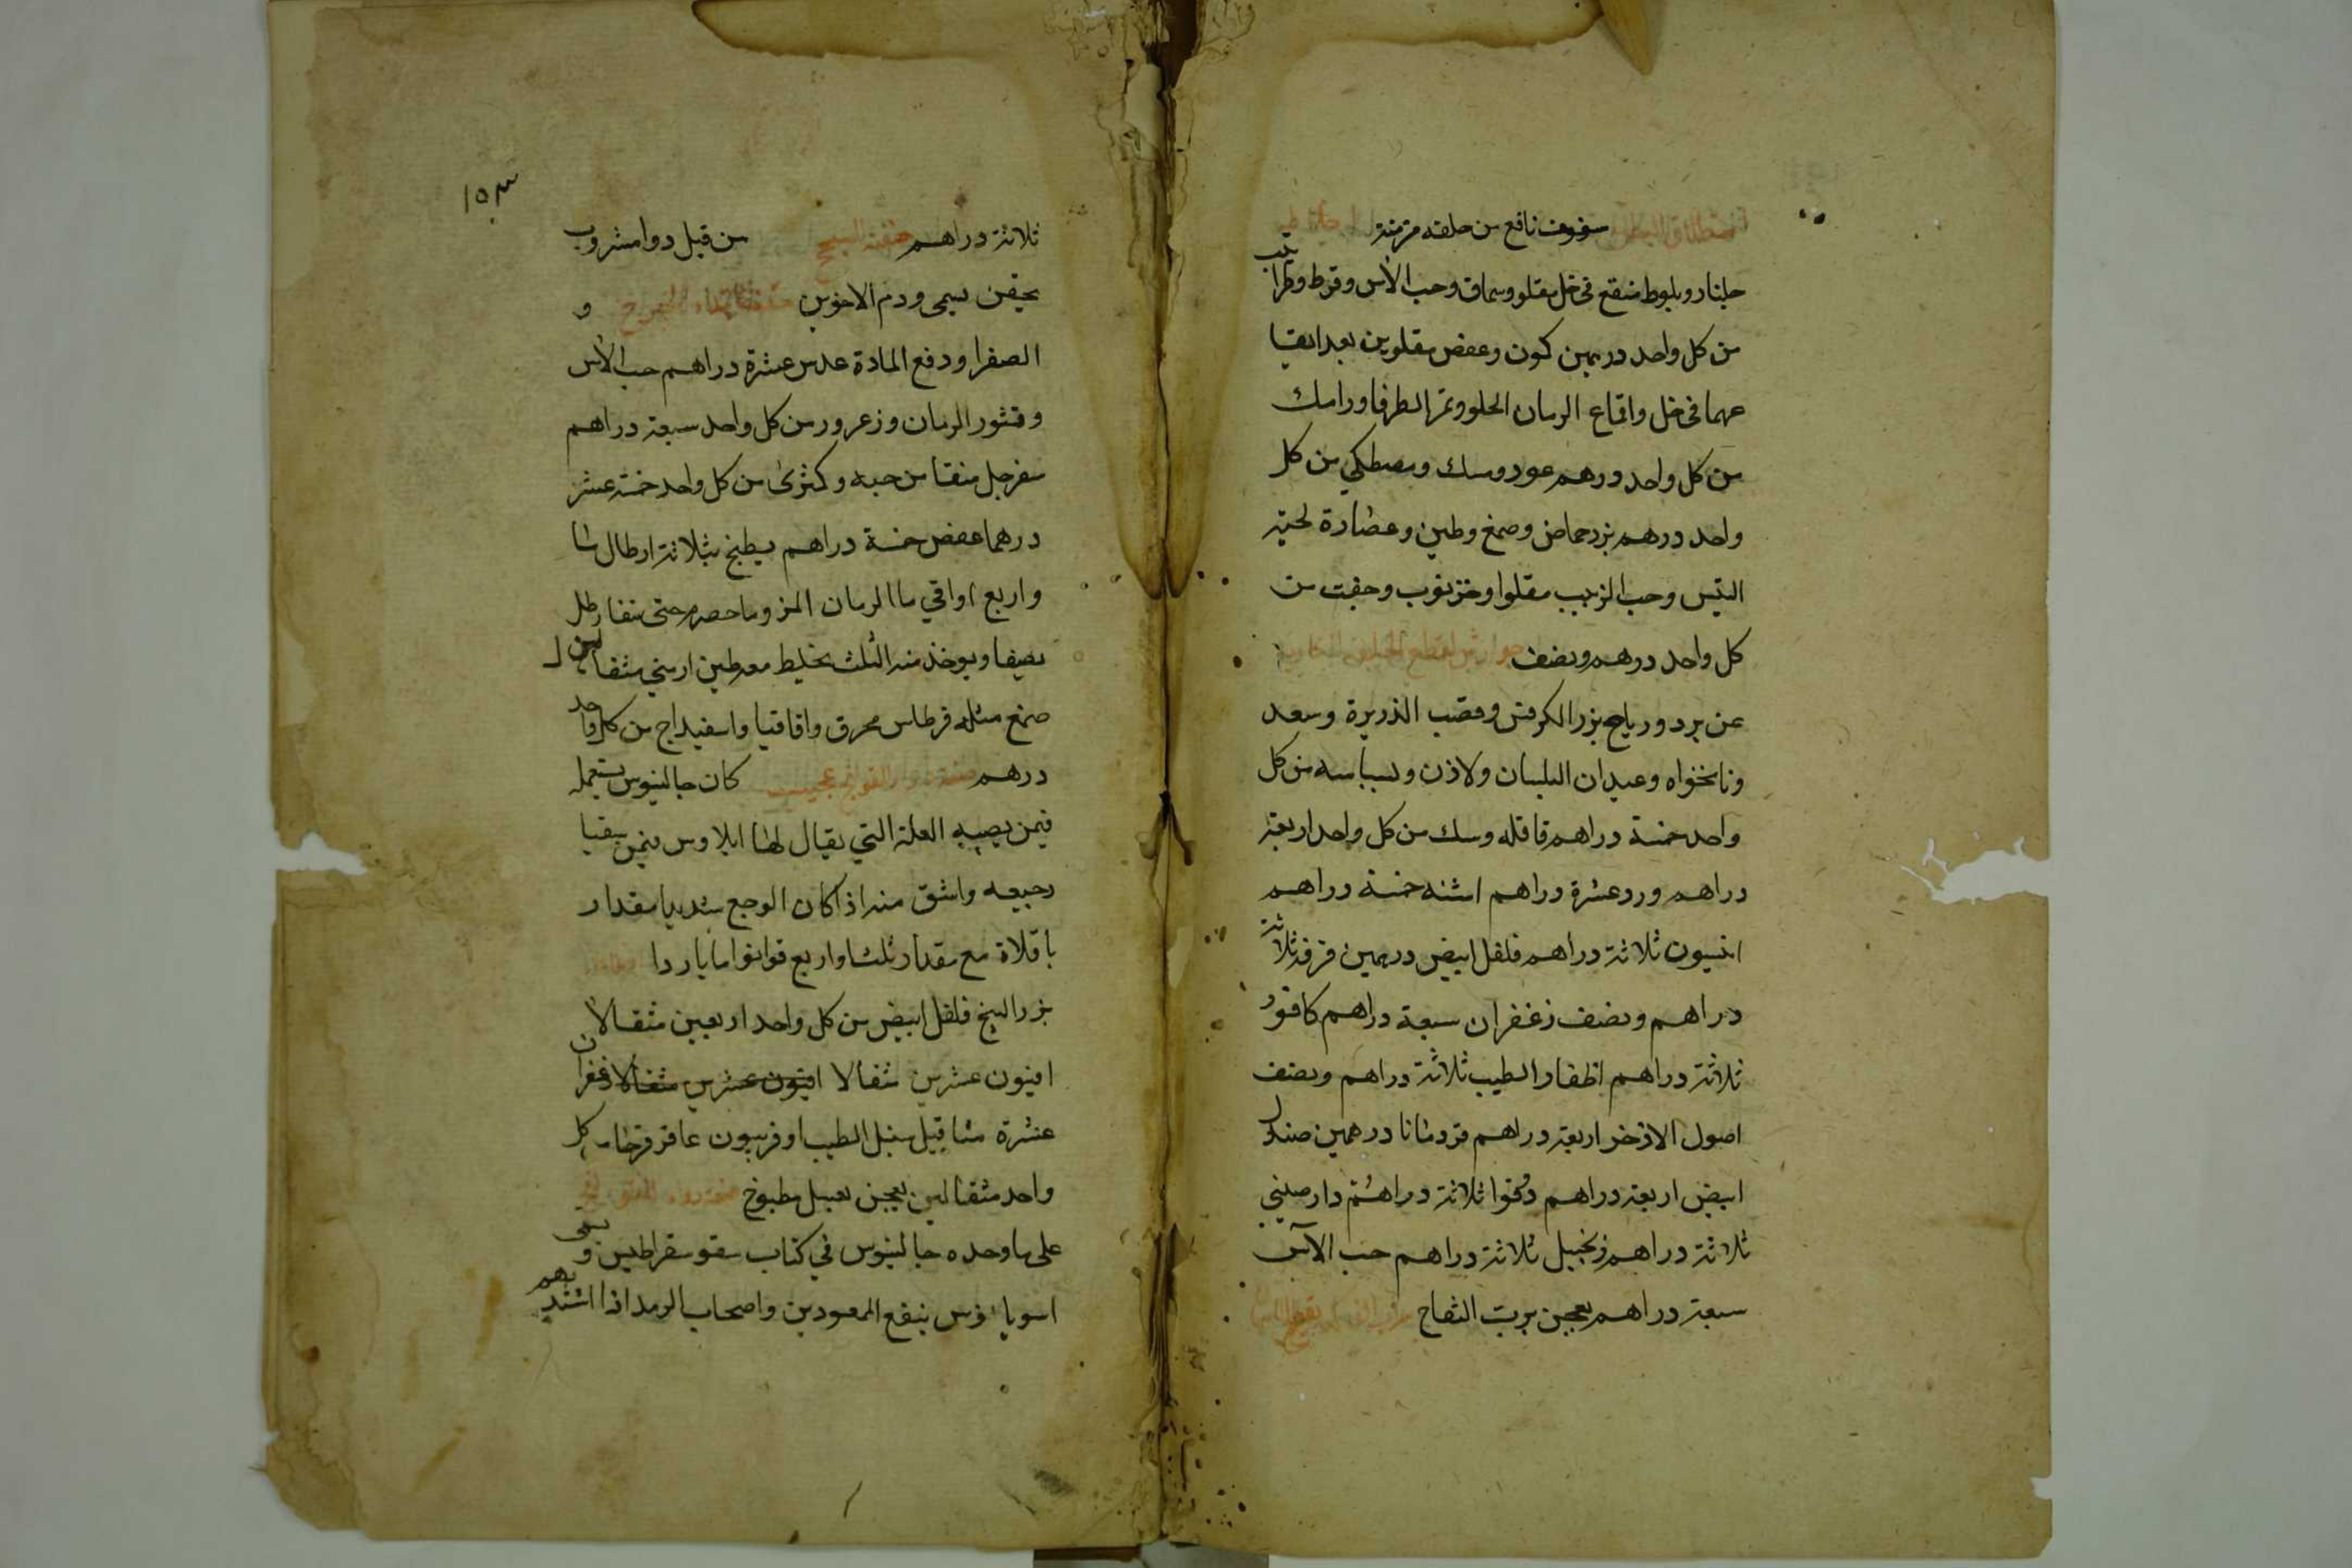 سفوف نافع من خلفه مزمنة
جلنار وبلوط منقع في خل مقلو وسماق وحب الآس وقرط وطراثيث
من كل واحد درهمين كمون وعفص مقلوين بعد انقا
عهما في خل واقماع الرمان الحلو وثمر الطرفا ورامك
من كل واحد درهم عود ومسك ومصطكي من كل
واحد درهم بزر حماض وصمغ وطين وعصارة لحية
التيس وحب الزبيب مقلوا وخرنوب وجفت من
كل واحد درهم ونصف جوارش لقطع
عن برد ورياح بزر الكرفس وقصب الذريرة وسعد
ونانخواه وعيدان البلسان ولاذن وبسباسه من كل
واحد خمسة دراهم قاقله وسك من كل واحد اربعة
دراهم ورد عشرة دراهم اشنه خمسة دراهم
انيسون ثلاثة دراهم فلفل ابيض درهمين قرفه ثلاثة
دراهم ونصف زعفران سبعة دراهم كافور
ثلاثة دراهم اظفار الطيب ثلاثة دراهم ونصف
اصول الاذخر اربعة دراهم قردمانا درهمين صندل
ابيض اربعة دراهم دوقوا ثلاثة دراهم دارصيني
ثلاثة دراهم زنجبيل ثلاثة دراهم حب الآس
سبعة دراهم يعجن برب التفاح
١٥٣
ثلاثة دراهم حقنة السحج من قبل دوا مشروب
يحقن بسمى ودم الاخوين و
الصفرا ودفع المادة عدس عشرة دراهم حب الآس
وقشور الرمان وزعرور من كل واحد سبعة دراهم
سفرجل منقا من حبه وكمثرى من كل واحد خمسة عشر
درهما عفص خمسة دراهم يطبخ بثلاثة ارطال ما
واربع اواقي ما الرمان المز وما حصرم حتى يبقا رطل
يصفا ويوخذ منه الثلث يخلط معه طين ارمني مثقالين
صمغ مثله قرطاس محرق واقاقيا واسفيداج من كل واحد
درهم كان جالينوس يستعمله
فيمن يصيبه العلة التي يقال لها ايلاوس فيمن يتقيا
رجيعه واسق منه اذا كان الوجع شديدا مقدار
باقلاة مع مقدار ثلث او اربع قوانوا ما باردا
بزر البنج فلفل ابيض من كل واحد اربعين مثقالا
افيون عشرين مثقالا افيون عشرين مثقالا زعفران
عشرة مثاقيل سنبل الطيب اوفربيون عاقرقرحا من كل
واحد مثقالين يعجن بعسل مطبوخ
على ما وحده جالينوس في كتاب سقوسقراطيس ويسمى
ينفع الممعودين واصحاب الرمد اذا اشتد بهم